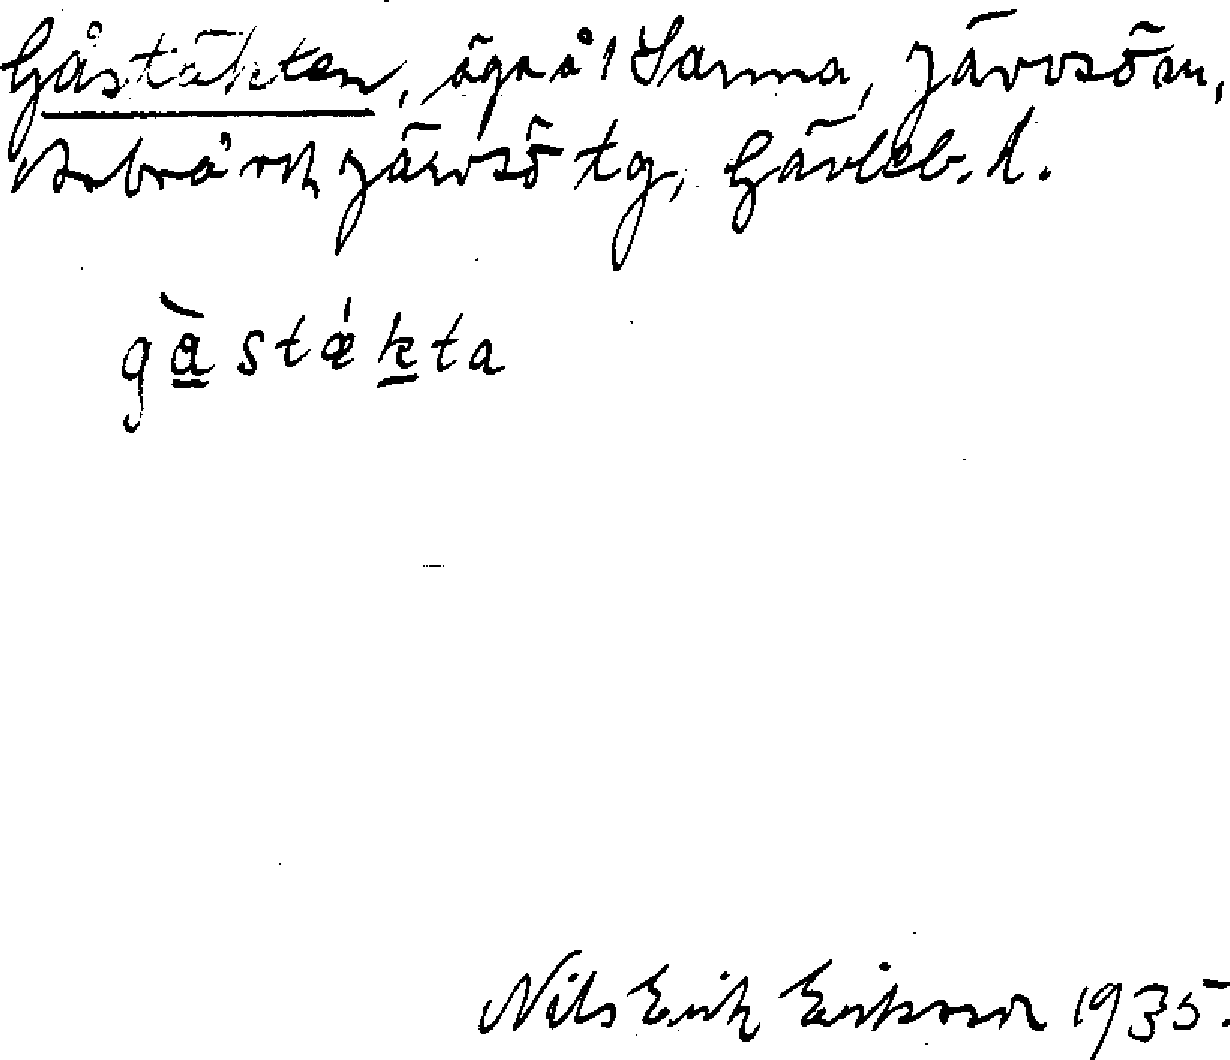 Gåstäkten, äga å 1 Sanna, Järvsö sn,
Arbrå och Järvsö tg, Gävleb. l.
gàstǽkta
Nils Erik Eriksson 1935.